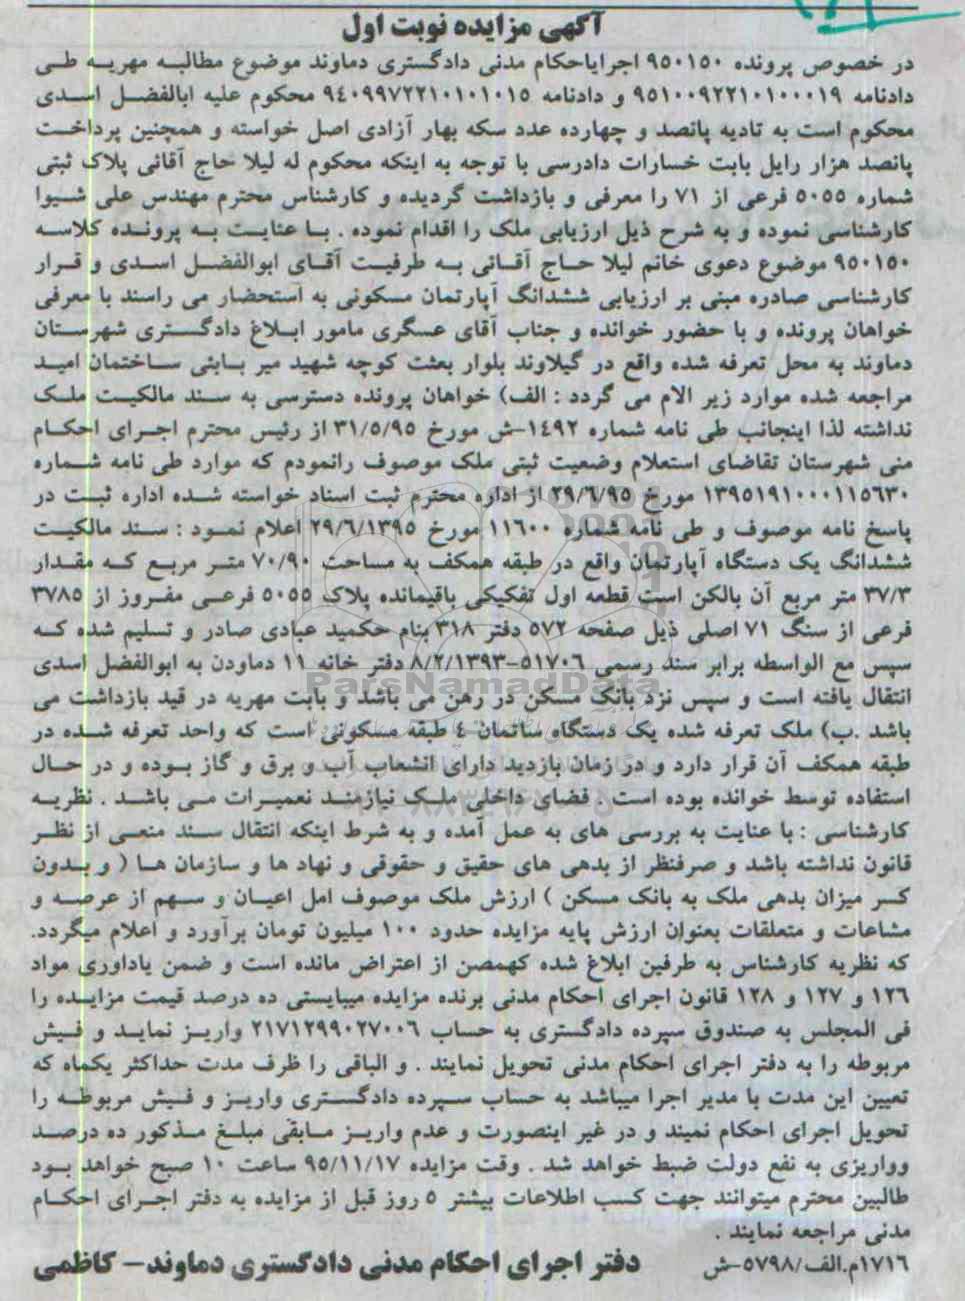 آگهی مزایده نوبت اول
در خصوص پرونده ۹۵۰۱۵۰ اجرایاحکام مدنی دادگستری دماوند موضوع مطالبه مهریه طی
دادنامه ۹۵۱۰۰۹۲۲۱۰۱۰۰۰۱۹ و دادنامه ۹۴۰۹۹۷۲۲۱۰۱۰۱۰۱۵ محکوم علیه ابالفضل اسدی
محکوم است به تادیه پانصد و چهارده عدد سکه بهار آزادی اصل خواسته و همچنین پرداخت
پانصد هزار رایل بابت خسارات دادرسی با توجه به اینکه محکوم له لیلا حاج آقائی پلاک ثبتی
شماره ۵۰۵۵ فرعی از ۷۱ را معرفی و بازداشت گردیده و کارشناس محترم مهندس علی شیوا
کارشناسی نموده و به شرح ذیل ارزیابی ملک را اقدام نموده . با عنایت به پرونده کلاسه
۹۵۰۱۵۰ موضوع دعوی خانم لیلا حاج آقائی به طرفیت آقای ابوالفضل اسدی و قرار
کارشناسی صادره مبنی بر ارزیابی ششدانگ آپارتمان مسکونی به استحضار می راسند با معرفی
خواهان پرونده و با حضور خوانده و جناب آقای عسگری مامور ابلاغ دادگستری شهرستان
دماوند به محل تعرفه شده واقع در گیلاوند بلوار بعثت کوچه شهید میر بابئی ساختمان امید
مراجعه شده موارد زیر الام می گردد : الف) خواهان پرونده دسترسی به سند مالکیت ملک
نداشته لذا اینجانب طی نامه شماره ۱۴۹۲-ش مورخ ۳۱/۵/۹۵ از رئیس محترم اجرای احکام
منی شهرستان تقاضای استعلام وضعیت ثبتی ملک موصوف رانمودم که موارد طی نامه شماره
۱۳۹۵۱۹۱۰۰۰۱۱۵۶۳۰ مورخ ۲۹/۶/۹۵ از اداره محترم ثبت اسناد خواسته شده اداره ثبت در
پاسخ نامه موصوف و طی نامه شماره ۱۱۶۰۰ مورخ ۲۹/۶/۱۳۹۵ اعلام نمود : سند مالکیت
ششدانگ یک دستگاه آپارتمان واقع در طبقه همکف به مساحت ۷۰/۹۰ متر مربع که مقدار
۳۷/۳ متر مربع آن بالکن است قطعه اول تفکیکی باقیمانده پلاک ۵۰۵۵ فرعی مفروز از ۳۷۸۵
فرعی از سنگ ۷۱ اصلی ذیل صفحه ۵۷۲ دفتر ۳۱۸ بنام حکمید عبادی صادر و تسلیم شده که
سپس مع الواسطه برابر سند رسمی ۵۱۷۰۶-۸/۲/۱۳۹۳ دفتر خانه ۱۱ دماودن به ابوالفضل اسدی
انتقال یافته است و سپس نزد بانک مسکن در رهن می باشد و بابت مهریه در قید بازداشت می
باشد .ب) ملک تعرفه شده یک دستگاه ساتمان ۴ طبقه مسکونی است که واحد تعرفه شده در
طبقه همکف آن قرار دارد و در زمان بازدید دارای انشعاب آب و برق و گاز بوده و در حال
استفاده توسط خوانده بوده است . فضای داخلی ملک نیازمند نعمیرات می باشد . نظریه
کارشناسی : با عنایت به بررسی های به عمل آمده و به شرط اینکه انتقال سند منعی از نظر
قانون نداشته باشد و صرفنظر از بدهی های حقیق و حقوقی و نهاد ها و سازمان ها ( و بدون
کسر میزان بدهی ملک به بانک مسکن ) ارزش ملک موصوف امل اعیان و سهم از عرصه و
مشاعات و متعلقات بعنوان ارزش پایه مزایده حدود ۱۰۰ میلیون تومان برآورد و اعلام میگردد.
که نظریه کارشناس به طرفین ابلاغ شده کهمصن از اعتراض مانده است و ضمن یاداوری مواد
۱۲۶ و ۱۲۷ و ۱۲۸ قانون اجرای احکام مدنی برنده مزایده میبایستی ده درصد قیمت مزایده را
فی المجلس به صندوق سپرده دادگستری به حساب ۲۱۷۱۲۹۹۰۲۷۰۰۶ واریز نماید و فیش
مربوطه را به دفتر اجرای احکام مدنی تحویل نمایند . و الباقی را ظرف مدت حداکثر یکماه که
تعیین این مدت با مدیر اجرا میباشد به حساب سپرده دادگستری واریز و فیش مربوطه را
تحویل اجرای احکام نمیند و در غیر اینصورت و عدم واریز مابقی مبلغ مذکور ده درصد
وواریزی به نفع دولت ضبط خواهد شد . وقت مزایده ۹۵/۱۱/۱۷ ساعت ۱۰ صبح خواهد بود
طالبین محترم میتوانند جهت کسب اطلاعات بیشتر ۵ روز قبل از مزایده به دفتر اجرای احکام
مدنی مراجعه نمایند .
۱۷۱۶م.الف/۵۷۹۸-ش دفتر اجرای احکام مدنی دادگستری دماوند- کاظمی
ParsNamadData